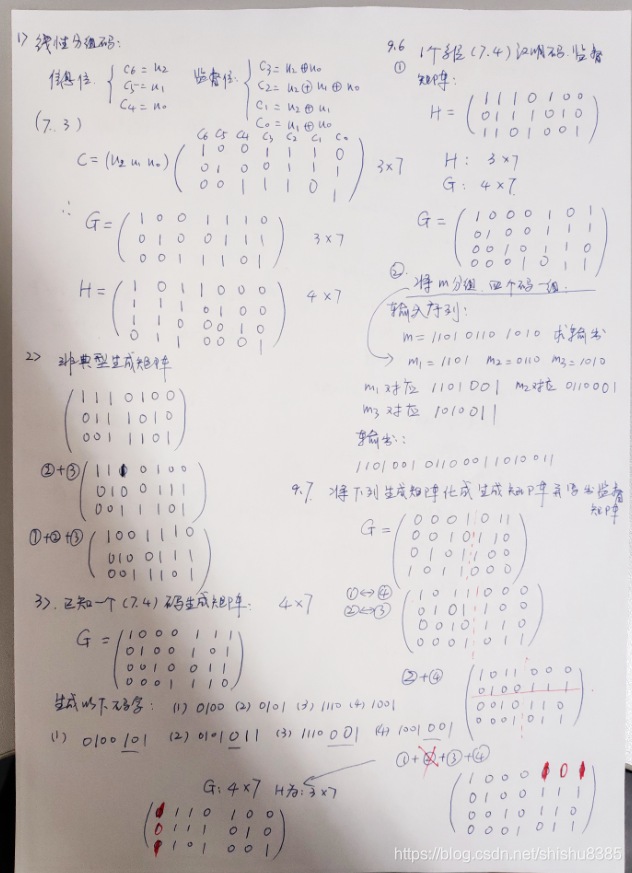 1) 线性分组码:
信息位 { C6 = u2
C5 = u1
C4 = u0
监督位 { C3 = u2 ⊕ u0
C2 = u2 ⊕ u1 ⊕ u0
C1 = u2 ⊕ u1
C0 = u1 ⊕ u0
(7.3)
C6 C5 C4 C3 C2 C1 C0
C = (u2 u1 u0)
1 0 0 1 1 1 0
0 1 0 0 1 1 1
0 0 1 1 1 0 1
3×7
∴
G =
1 0 0 1 1 1 0
0 1 0 0 1 1 1
0 0 1 1 1 0 1
3×7
H =
1 0 1 1 0 0 0
1 1 1 0 1 0 0
1 1 0 0 0 1 0
0 1 1 0 0 0 1
4×7
2> 非典型生成矩阵
1 1 1 0 1 0 0
0 1 1 1 0 1 0
0 0 1 1 1 0 1
②+③
1 1 1 0 1 0 0
0 1 0 0 1 1 1
0 0 1 1 1 0 1
①+②+③
1 0 0 1 1 1 0
0 1 0 0 1 1 1
0 0 1 1 1 0 1
3>. 已知一个(7.4)码生成矩阵: 4×7
G =
1 0 0 0 1 1 1
0 1 0 0 1 0 1
0 0 1 0 0 1 1
0 0 0 1 1 1 0
生成以下码字: (1) 0100 (2) 0101 (3) 1110 (4) 1001
(1) 0100101 (2) 0101011 (3) 1110001 (4) 1001001
G: 4×7 H为: 3×7
1 1 1 0 1 0 0
0 1 1 1 0 1 0
1 1 0 1 0 0 1
9.6 1个系统(7.4)汉明码. 监督
① 矩阵:
H =
1 1 1 0 1 0 0
0 1 1 1 0 1 0
1 1 0 1 0 0 1
H: 3×7
G: 4×7.
G =
1 0 0 0 1 0 1
0 1 0 0 1 1 1
0 0 1 0 1 1 0
0 0 0 1 0 1 1
② 将m分组. 四个码一组.
输入序列:
m = 1101 0110 1010 求输出
m1 = 1101 m2 = 0110 m3 = 1010
m1对应 1101001 m2对应 0110001
m3对应 1010011
输出:
1101001 0110001 1010011
9.7 将下列生成矩阵化成生成矩阵并写出监督
矩阵
G =
0 0 0 1 0 1 1
0 0 1 0 1 1 0
0 1 0 1 1 0 0
1 0 1 1 0 0 0
①↔④
②↔③
1 0 1 1 0 0 0
0 1 0 1 1 0 0
0 0 1 0 1 1 0
0 0 0 1 0 1 1
②+④
1 0 1 1 0 0 0
0 1 0 0 1 1 1
0 0 1 0 1 1 0
0 0 0 1 0 1 1
①+②+③+④
1 0 0 0 1 0 1
0 1 0 0 1 1 1
0 0 1 0 1 1 0
0 0 0 1 0 1 1
https://blog.csdn.net/shishu8385